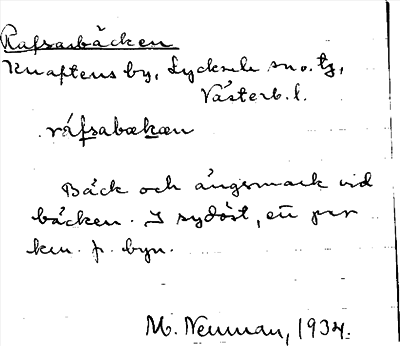 Rafsasbäcken
Knaftens by, Lycksele sn o. tg,
Västerb. l.
råfsabækæn
Bäck och ängsmark vid
bäcken. I sydöst, ett par
km. fr. byn.
M. Neuman, 1934.